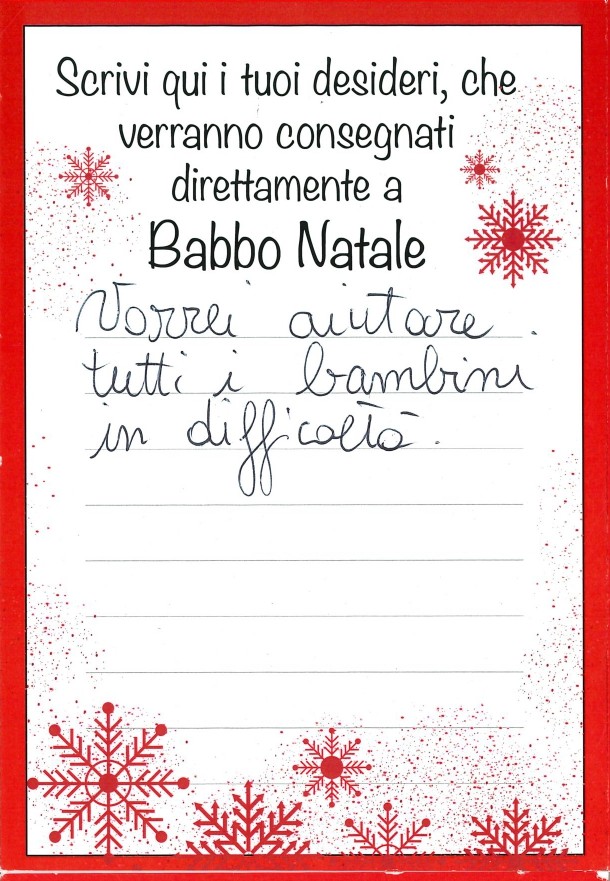 Scrivi qui i tuoi desideri, che
verranno consegnati
direttamente a
Babbo Natale
Vorrei aiutare
tutti i bambini
in difficoltà.